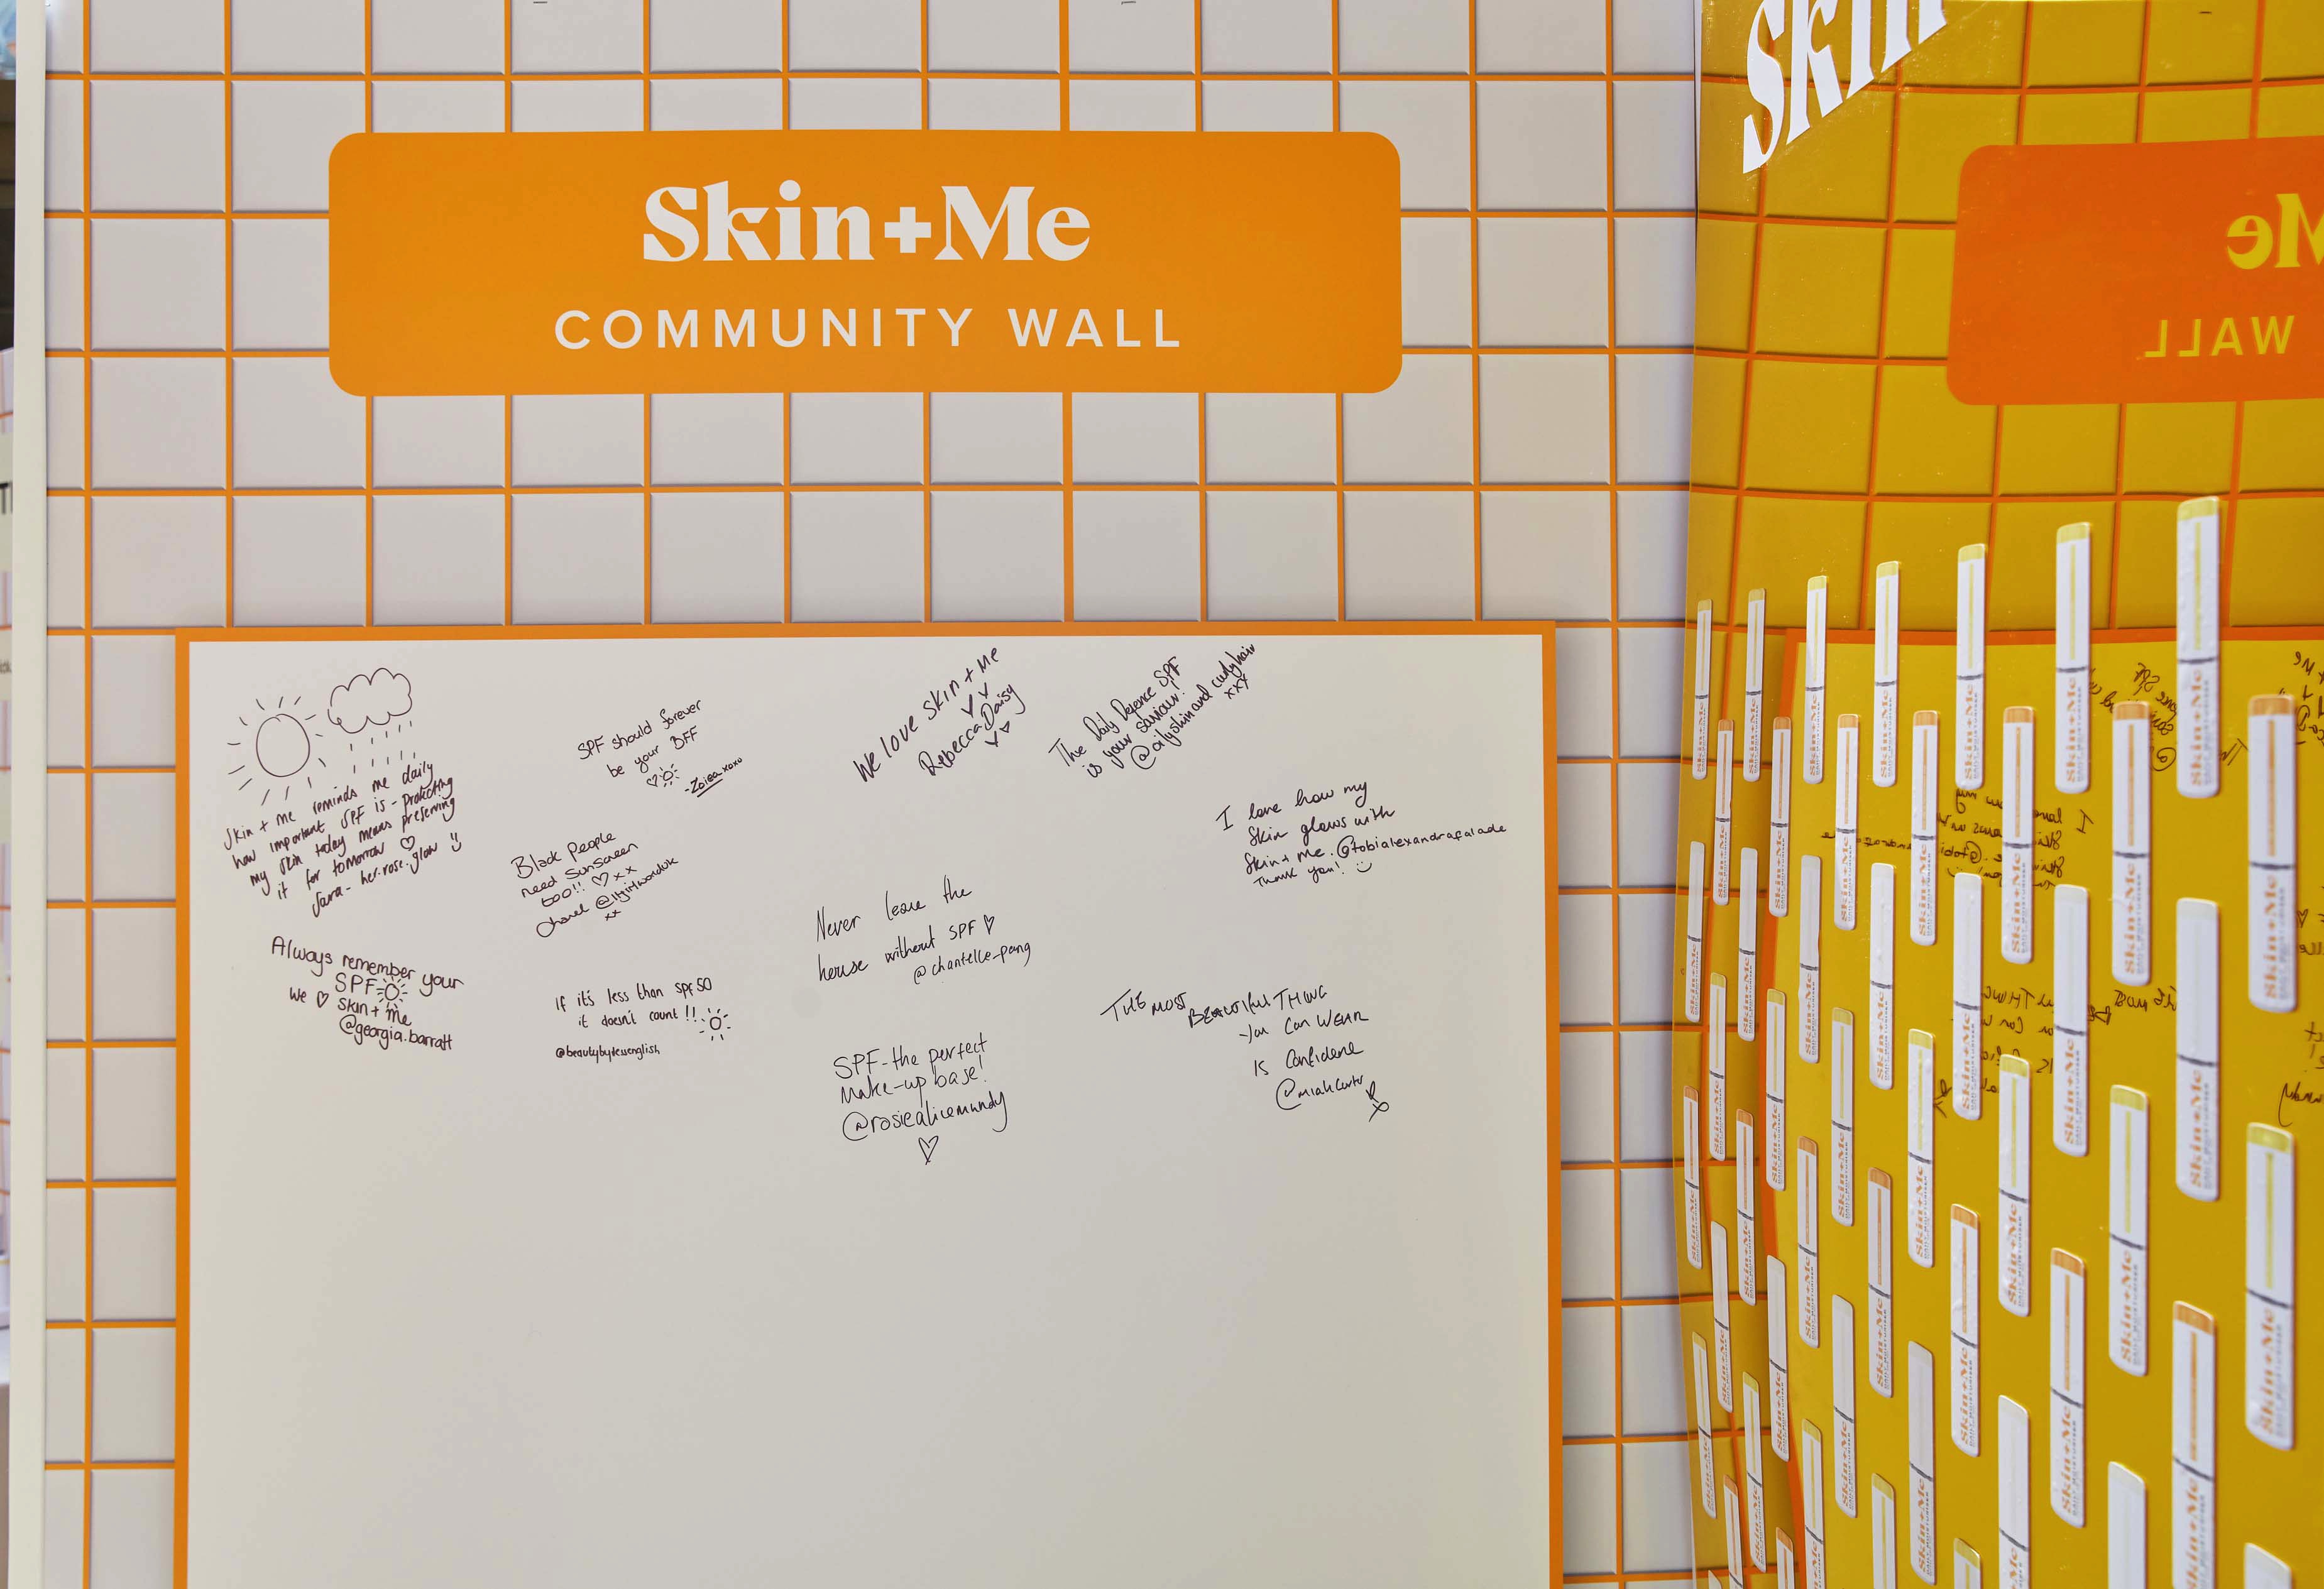 Skin+Me
COMMUNITY WALL
Skin + me reminds me daily
how important SPF is - protecting
my skin today means preserving
it for tomorrow ♡
Sara - her.rose.glow
Always remember your
SPF
We ♡ Skin + me
@georgia.barratt
SPF should forever
be your BFF
- Zoiea xoxo
Black People
need Sunscreen
too!! ♡ xx
xx
If it's less than spf 50
it doesn't count!!
@beautybytessenglish
We love Skin + Me
Rebecca Daisy
Never leave the
house without SPF ♡
@chantelle_pang
SPF - the perfect
Make-up base!
@rosiealicemundy
♡
The Daily Defence SPF
is your saviour!
@oilyskinandcurlyhair
xxx
I love how my
Skin glows with
Skin + Me. @tobialexandrafalade
Thank you!
THE MOST
BEAUTIFUL THING
You Can WEAR
Is Confidence
Skin
Me
WALL
Skin+Me